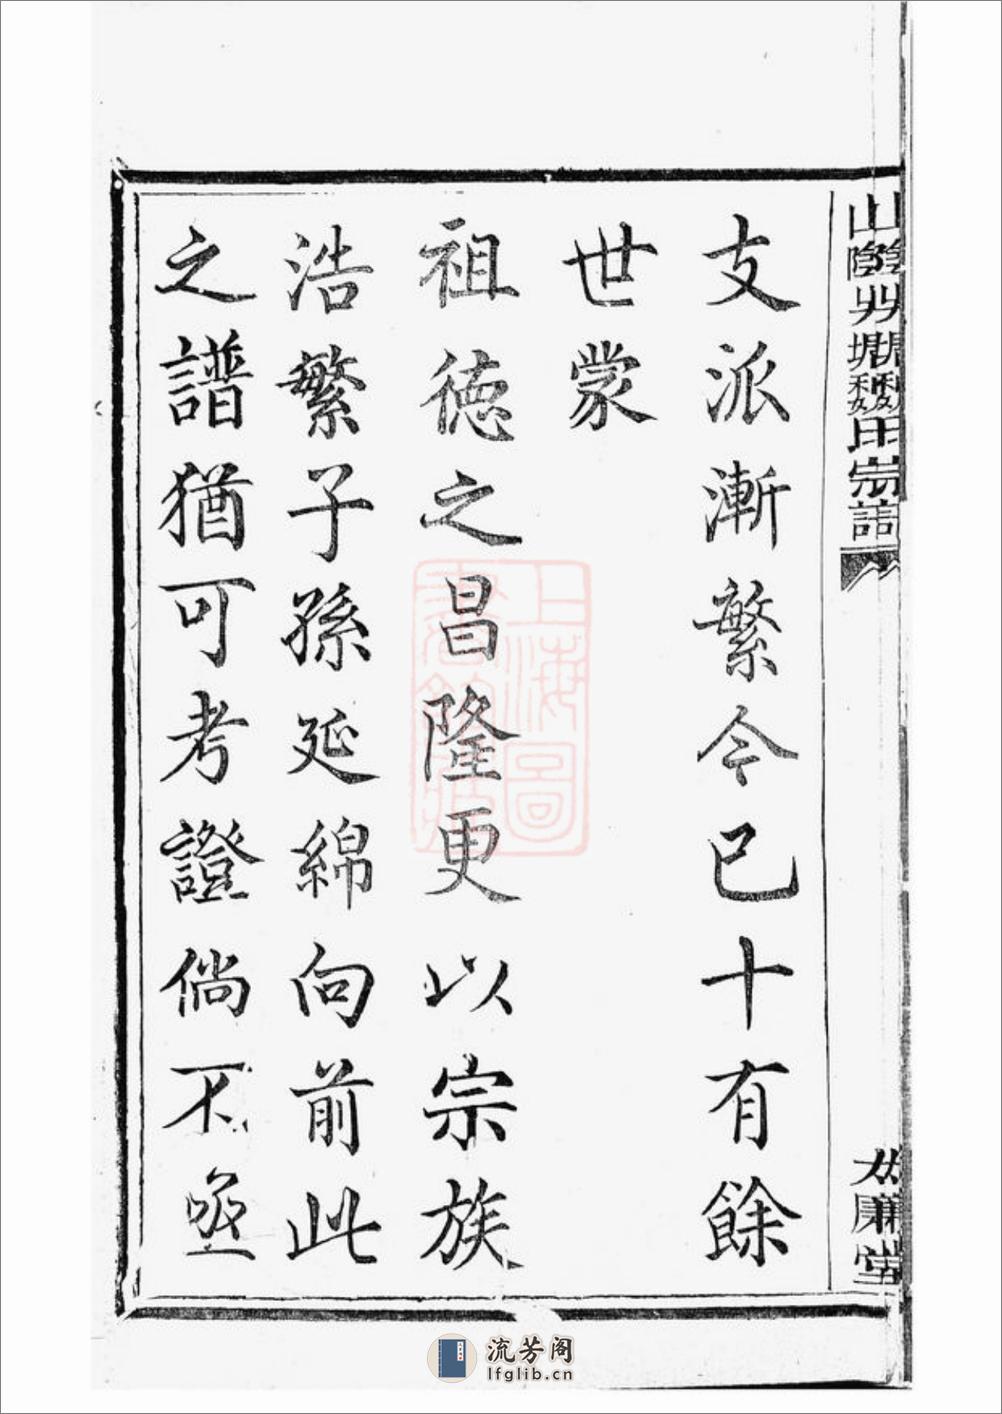 支派漸繁今已十有餘
世蒙
祖德之昌隆更以宗族
浩繁子孫延綿向前此
之譜猶可考證倘不亟
山陰
宗譜
堂
上海圖
書館藏
流芳阁
lfglib.cn